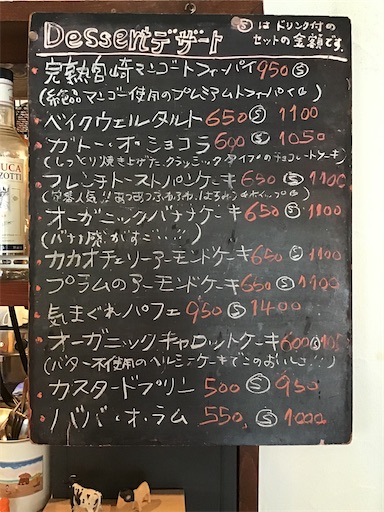 Dessertデザート
Ⓢは ドリンク付の
セットの金額です。
完熟宮崎マンゴートフィーパイ 950 Ⓢ
(絶品マンゴー使用のプレミアムトフィーパイ
ベイクウェルタルト 650 Ⓢ 1100
ガトー・オ・ショコラ 600 Ⓢ 1050
(しっとり焼き上げた、クラシックタイプのチョコレートケーキ)
フレンチトーストパンケーキ 650 Ⓢ 1100
オーガニックバナナケーキ 650 Ⓢ 1100
(バナナ感がすごい!!!)
カカオチェリーアーモンドケーキ 650 Ⓢ 1100
プラムのアーモンドケーキ 650 Ⓢ 1100
気まぐれパフェ 950 Ⓢ 1400
オーガニックキャロットケーキ 600 Ⓢ
(バター不使用のヘルシーケーキでこのおいしさ!!!)
カスタードプリン 500 Ⓢ 950
ババ・オ・ラム 550 Ⓢ 1000